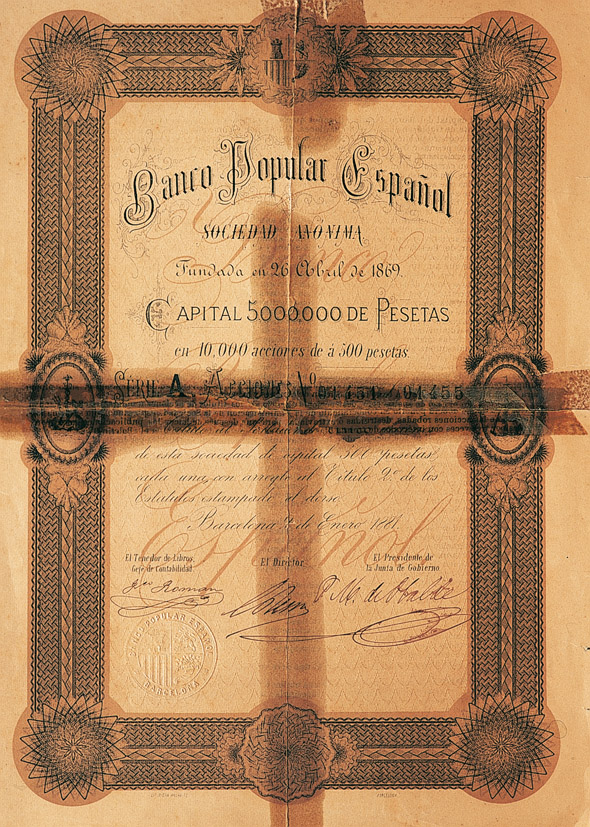 Banco Popular Español
SOCIEDAD ANÓNIMA
Fundada en 26 Abril de 1869.
CAPITAL 5.000,000 DE PESETAS
en 10,000 acciones de á 500 pesetas
SERIE A. ACCIONES Nº
de esta sociedad de capital 500 pesetas
cada una, con arreglo al Título 2º de los
Estatutos estampado al dorso.
Barcelona de Enero 1881.
El Tenedor de Libros
Gefe de Contabilidad
El Director
El Presidente de
la Junta de Gobierno
Roman
BANCO POPULAR ESPAÑOL
BARCELONA